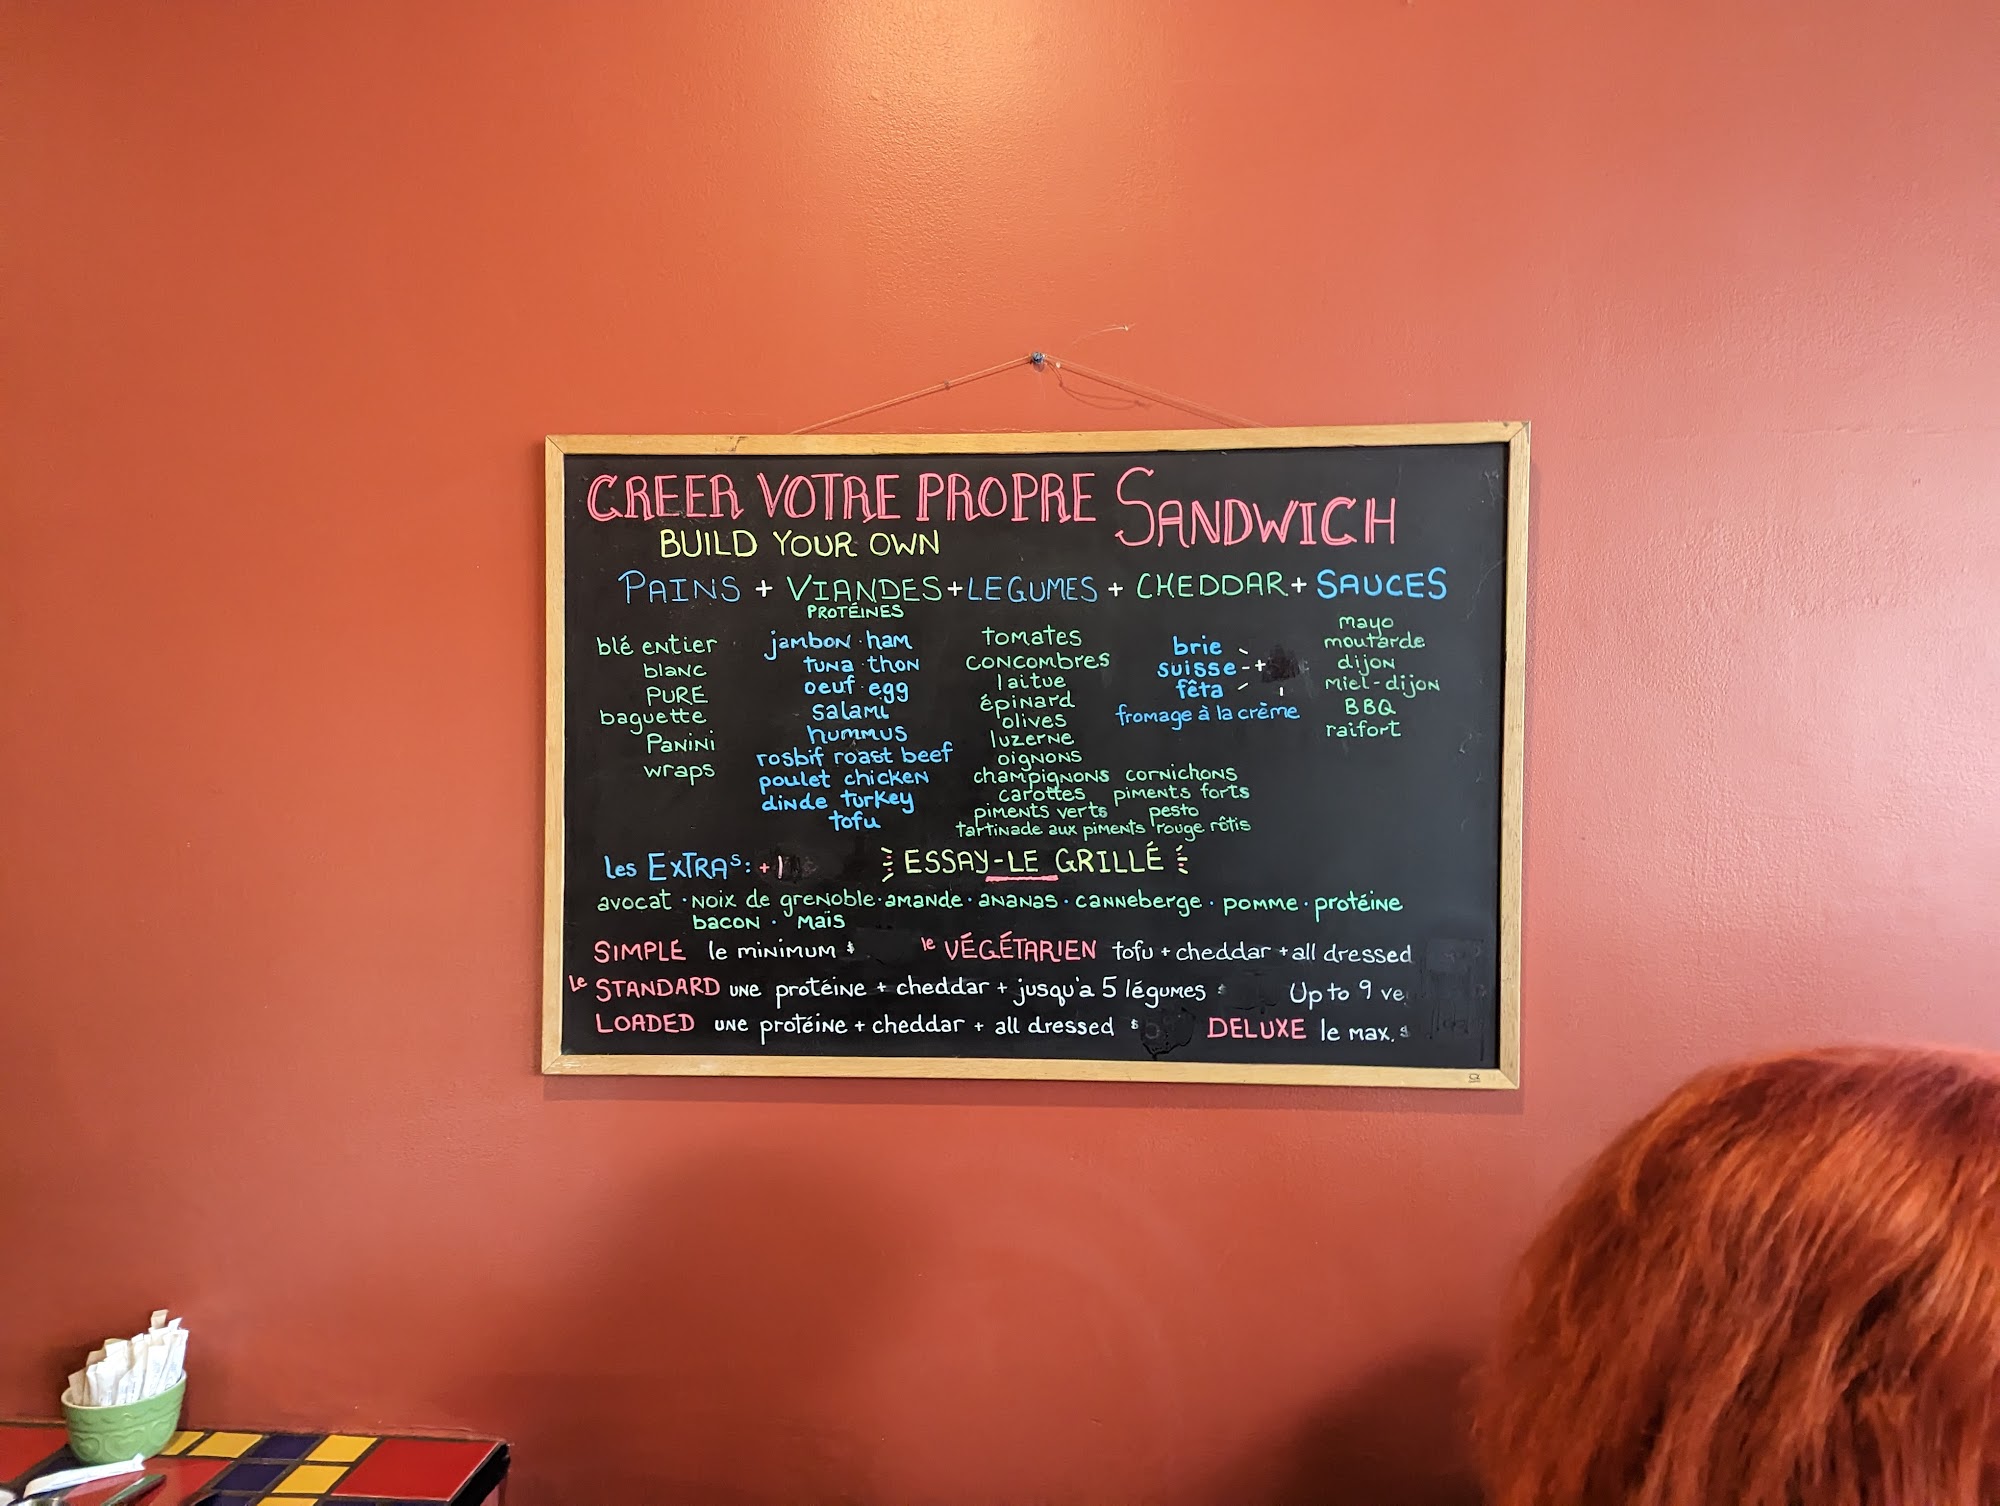 CREER VOTRE PROPRE SANDWICH
BUILD YOUR OWN
PAINS + VIANDES + LEGUMES + CHEDDAR + SAUCES
PROTÉINES
blé entier
blanc
PURE
baguette
Panini
wraps
jambon · ham
tuna · thon
oeuf · egg
salami
hummus
rosbif roast beef
poulet chicken
dinde turkey
tofu
tomates
concombres
laitue
épinard
olives
luzerne
oignons
champignons cornichons
carottes piments forts
piments verts pesto
tartinade aux piments rouge rôtis
brie
suisse - +
fêta
fromage à la crème
mayo
moutarde
dijon
miel-dijon
BBQ
raifort
les EXTRAS: +1
ESSAY-LE GRILLÉ
avocat · noix de grenoble · amande · ananas · canneberge · pomme · protéine
bacon · maïs
SIMPLE le minimum $
le VÉGÉTARIEN tofu + cheddar + all dressed
le STANDARD une protéine + cheddar + jusqu'a 5 légumes
Up to 9 ve
LOADED une protéine + cheddar + all dressed $
DELUXE le max. $